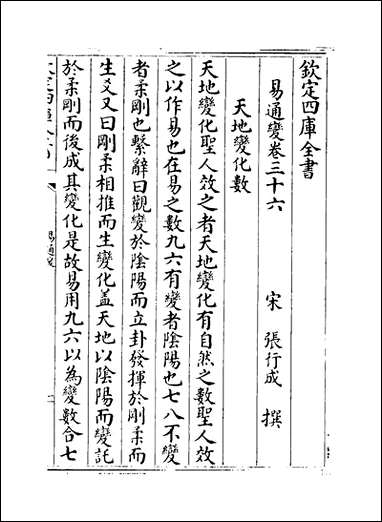 欽定四庫全書
易通變卷三十六
宋 張行成 撰
天地變化數
天地變化聖人效之者天地變化有自然之數聖人效
之以作易也在易之數九六有變者陰陽也七八不變
者柔剛也繫辭曰觀變於陰陽而立卦發揮於剛柔而
生爻又曰剛柔相推而生變化盖天地以陰陽而變託
於柔剛而後成其變化是故易用九六以為變數合七
易通變